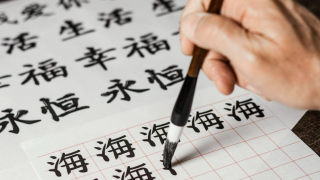 我爱你
活 生活
福 幸福
永恒 永恒
海 海 海 海 海
海